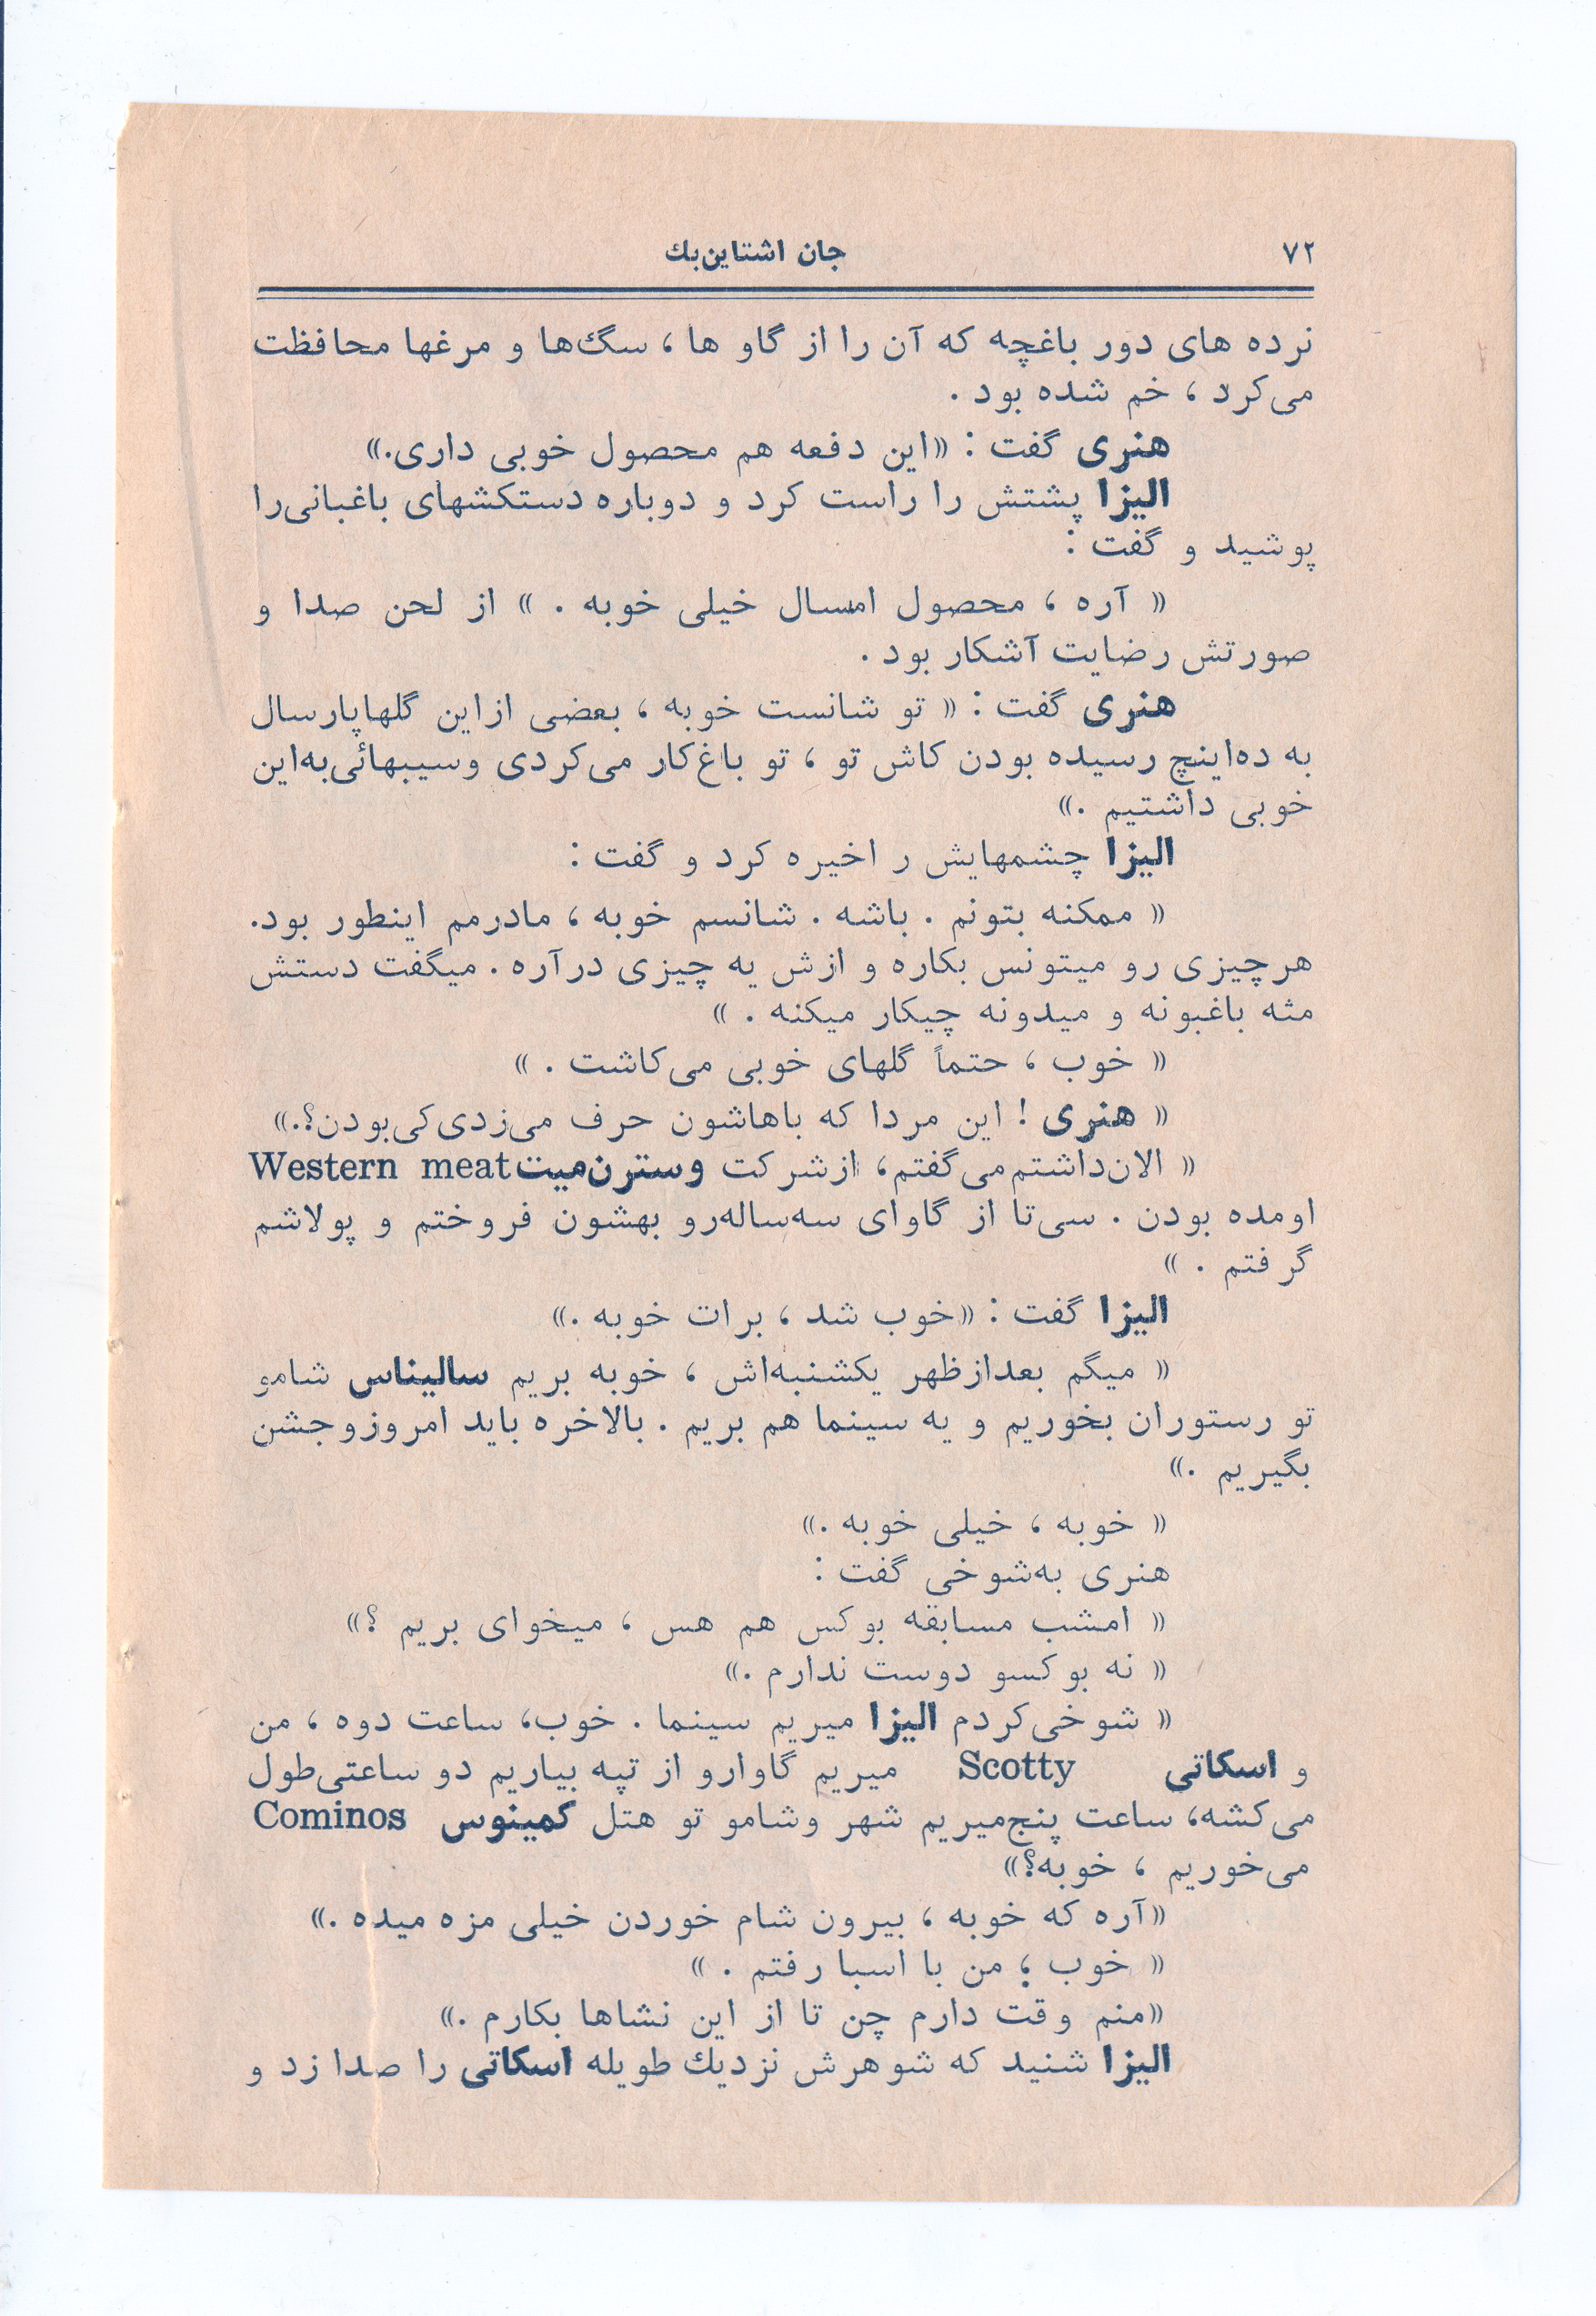 ۷۲
جان اشتاین‌بك
نرده های دور باغچه که آن را از گاو ها ، سگ‌ها و مرغها محافظت
می‌کرد ، خم شده بود .
هنری گفت : «این دفعه هم محصول خوبی داری.»
الیزا پشتش را راست کرد و دوباره دستکشهای باغبانی‌را
پوشید و گفت :
« آره ، محصول امسال خیلی خوبه . » از لحن صدا و
صورتش رضایت آشکار بود .
هنری گفت : « تو شانست خوبه ، بعضی ازاین گلهاپارسال
به ده‌اینچ رسیده بودن کاش تو ، تو باغ‌کار می‌کردی وسیبهائی‌به‌این
خوبی داشتیم .»
الیزا چشمهایش ر اخیره کرد و گفت :
« ممکنه بتونم . باشه . شانسم خوبه ، مادرمم اینطور بود.
هرچیزی رو میتونس بکاره و ازش یه چیزی درآره . میگفت دستش
مثه باغبونه و میدونه چیکار میکنه . »
« خوب ، حتماً گلهای خوبی می‌کاشت . »
« هنری ! این مردا که باهاشون حرف می‌زدی‌کی‌بودن؟.»
« الان‌داشتم‌می‌گفتم، ازشرکت وسترن‌میت Western meat
اومده بودن . سی‌تا از گاوای سه‌ساله‌رو بهشون فروختم و پولاشم
گرفتم . »
الیزا گفت : «خوب شد ، برات خوبه .»
« میگم بعدازظهر یکشنبه‌اش ، خوبه بریم سالیناس شامو
تو رستوران بخوریم و یه سینما هم بریم . بالاخره باید امروزوجشن
بگیریم .»
« خوبه ، خیلی خوبه .»
هنری به‌شوخی گفت :
« امشب مسابقه بوکس هم هس ، میخوای بریم ؟»
« نه بوکسو دوست ندارم .»
« شوخی‌کردم الیزا میریم سینما . خوب، ساعت دوه ، من
و اسکاتی Scotty میریم گاوارو از تپه بیاریم دو ساعتی‌طول
می‌کشه، ساعت پنج‌میریم شهر وشامو تو هتل کمینوس Cominos
می‌خوریم ، خوبه؟»
«آره که خوبه ، بیرون شام خوردن خیلی مزه میده .»
« خوب ؛ من با اسبا رفتم . »
«منم وقت دارم چن تا از این نشاها بکارم .»
الیزا شنید که شوهرش نزدیك طویله اسکاتی را صدا زد و